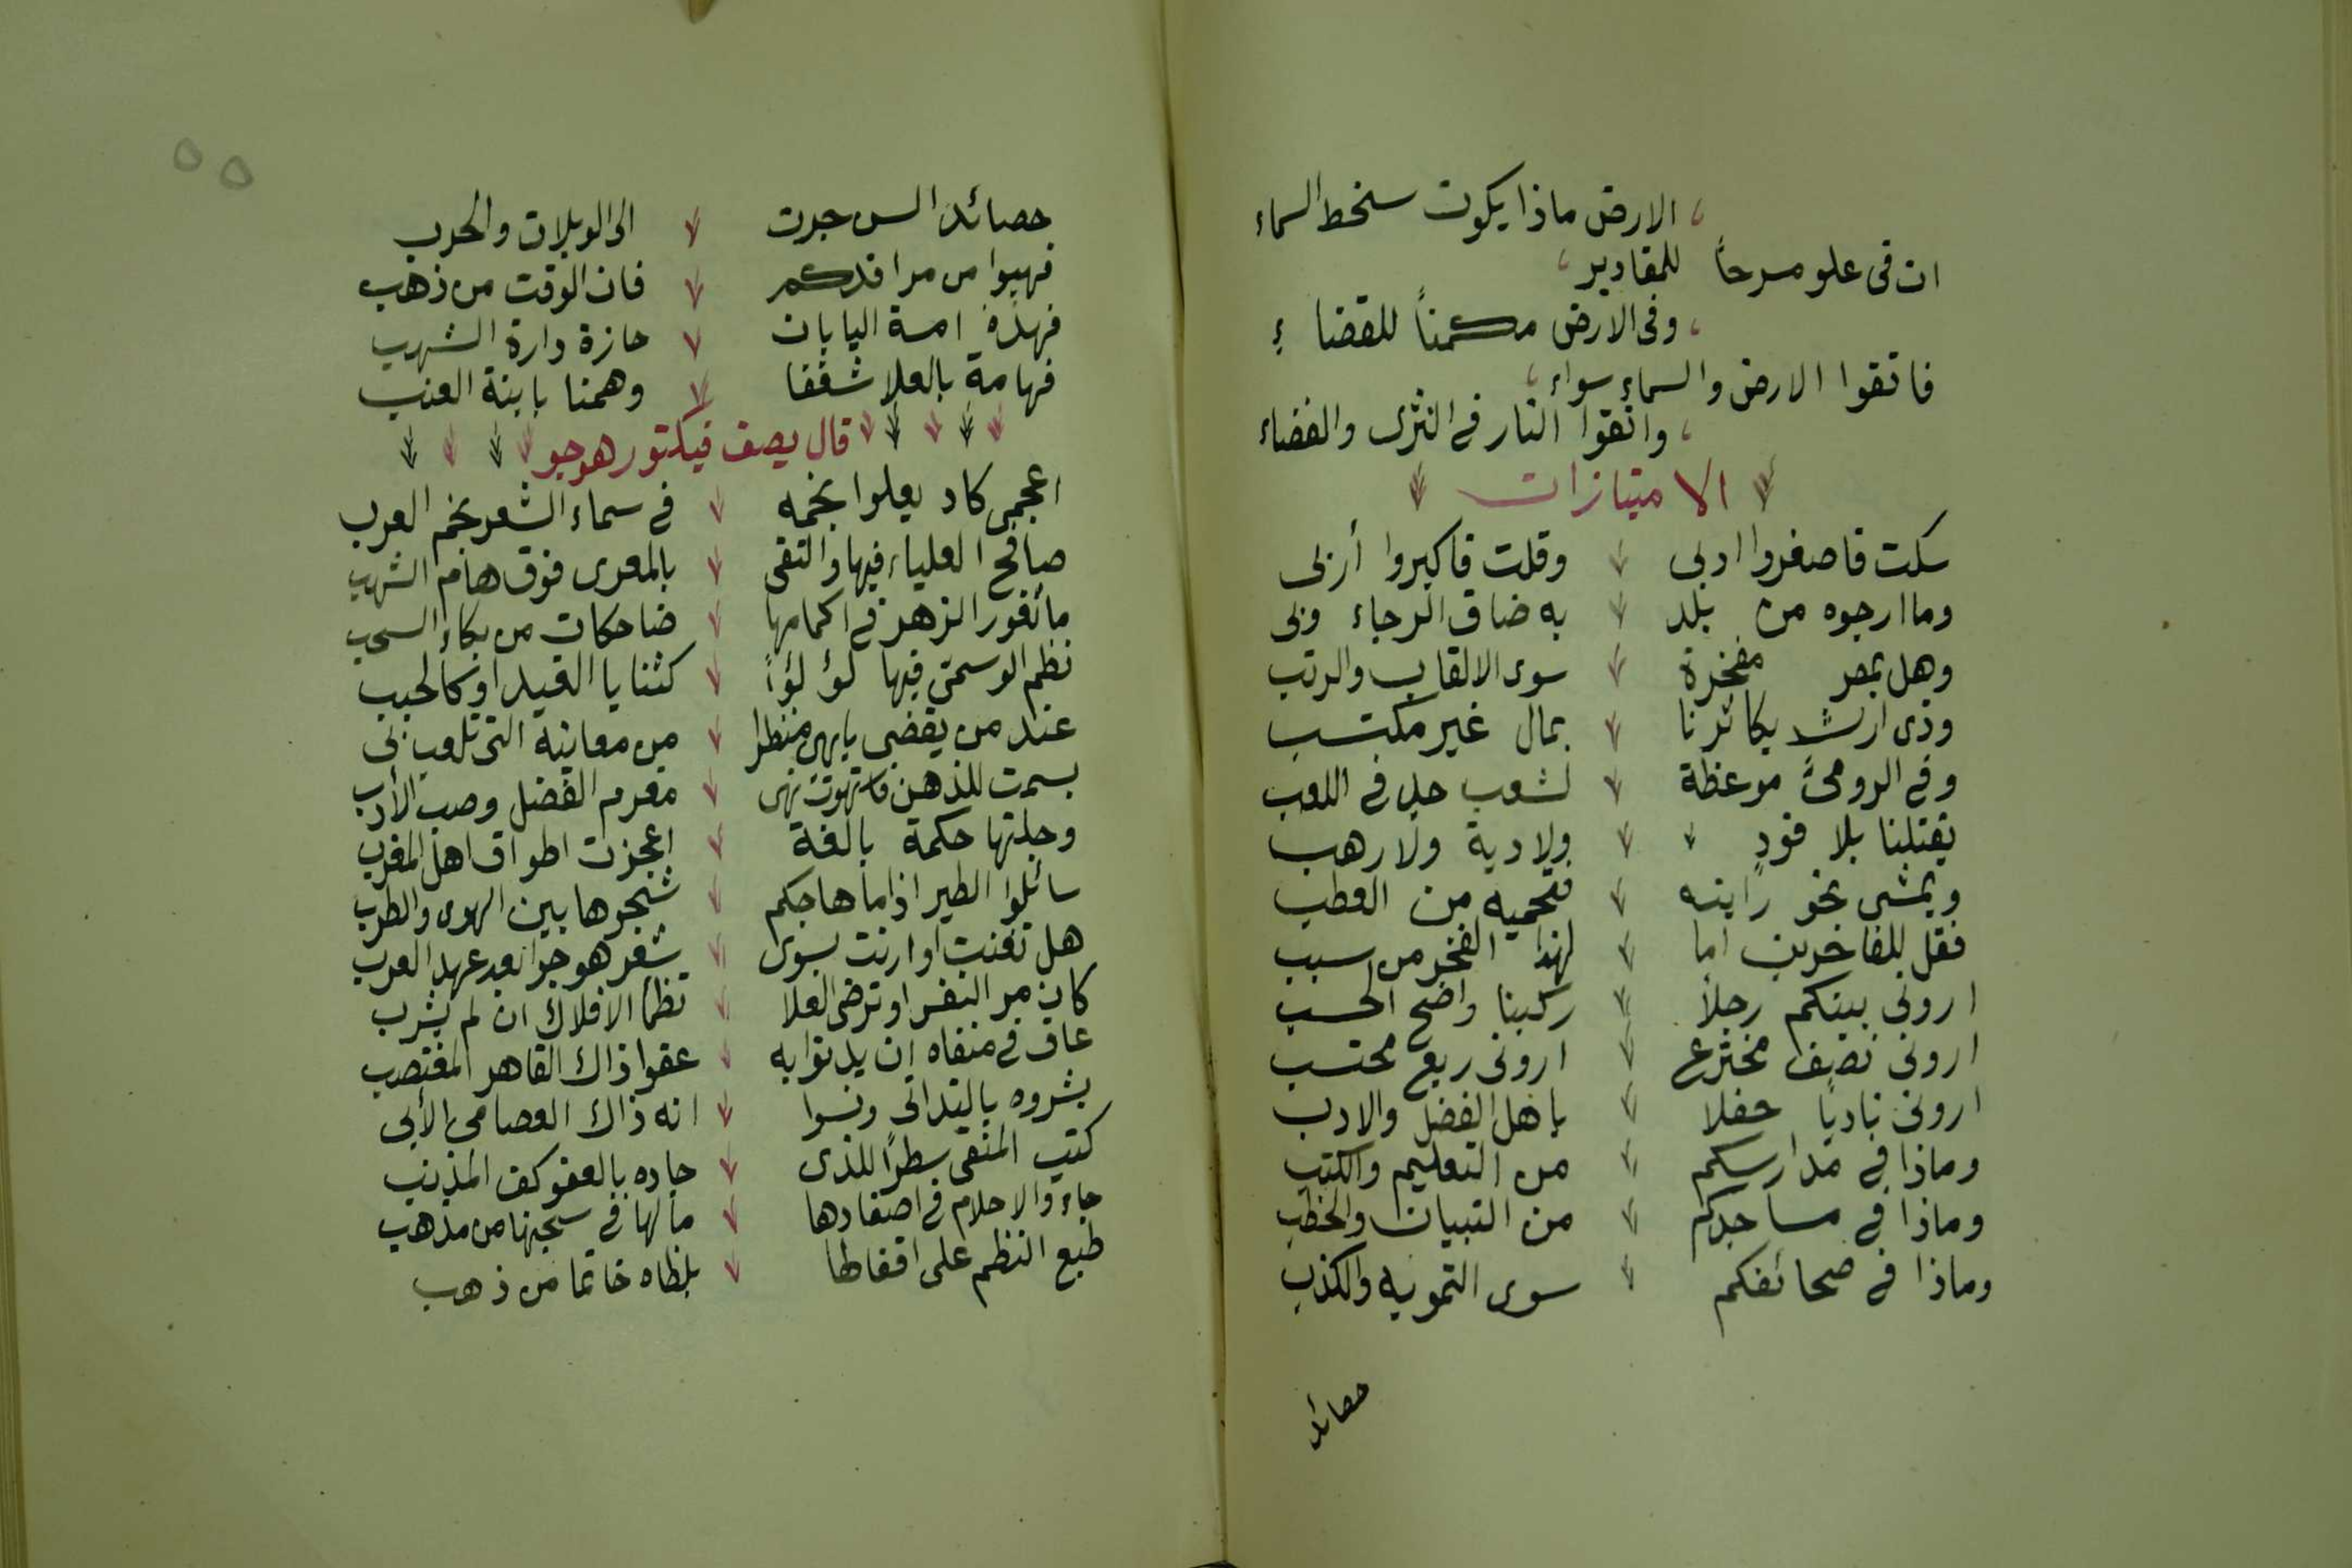 الارض ماذا يكون سخط السماء
ان فى علو مسرحاً للمقادير
وفى الارض مكمناً للقضاءِ
فاتقوا الارض والسماء سواء
واتقوا النار فى الثرى والفضاء
الامتيازات
سكت فاصغروا ادبى وقلت فاكبروا أربى
وما ارجوه من بلد به ضاق الرجاء وبى
وهل بمصر مفخرة سوى الالقاب والرتب
وذى ارث يكاثرنا بمال غير مكتسب
وفى الرومىّ موعظة لشعب جد فى اللعب
يقتلنا بلا قودٍ ولادية ولا رهب
ويمشى نحو رايته فتحميه من العطب
فقل للفاخرين اما لهذا الفخر من سبب
ارونى بينكم رجلاً ركينا واضح الحسب
ارونى نصف مخترع ارونى ربع محتسب
ارونى نادياً حفلا باهل الفضل والادب
وماذا فى مدارسكم من التعليم والكتب
وماذا فى مساجدكم من التبيان والخطب
وماذا فى صحائفكم سوى التمويه والكذب
حصائد
حصائد السن جرت الى الويلات والحرب
فهبوا من مراقدكم فان الوقت من ذهب
فهذه امة اليابان حازة دارة الشهب
فهامة بالعلا شغفا وهمنا بابنة العنب
قال يصف فيكتور هوجو
اعجمى كاد يعلوا نجمه فى سماء الشعر نجم العرب
صافح العلياء فيها والتقى بالمعرى فوق هام الشهب
ما ثغور الزهر فى اكمامها ضاحكات من بكاء السحب
نظم الوسمىّ فيها لؤلؤاً كثنايا الغيد او كالحبب
عند من يقضى بابهى منظرا من معانيه التى تلعب بى
بسمت للذهن فاستهوت نهى مغرم الفضل وصب الأدب
وجلتها حكمة بالغة اعجزت اطواق اهل المغرب
سائلوا الطير اذا ما هاجكم شجوها بين الهوى والطرب
هل تغنت او ارنت بسوى شعر هوجو بعد عهد العرب
كان مر النفس او ترضى العلا تظمأ الافلاك ان لم يشرب
عاف فى منفاه ان يدنوا به عفوا ذاك القاهر المغتصب
بشروه بالتدانى ونسوا انه ذاك العصامى الأبى
كتب المنفى سطراً للذى جاده بالعفو كف المذنب
جاء والاحلام فى اصفادها مالها فى سجنها من مذهب
طبع الظلم على اقفالها بلظاه خاتما من ذهب
٥٥